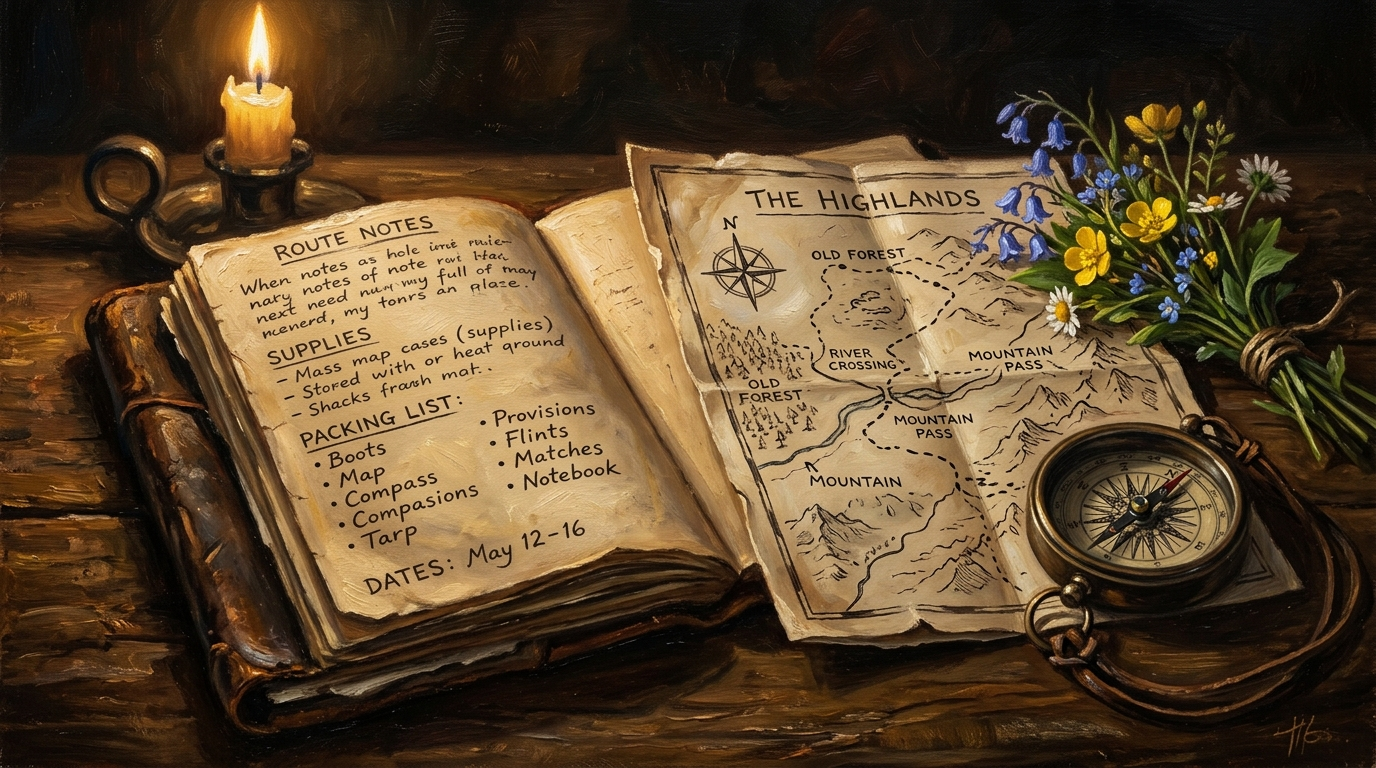 ROUTE NOTES
When notes as hole
notes of note
next need my full of may
my an
SUPPLIES
- Mass map cases (supplies)
- Stored with or heat qround
- Shacks mat..
PACKING LIST:
• Boots
• Map
• Compass
• Compasions
• Tarp
• Provisions
• Flints
• Matches
• Notebook
DATES: May 12-16
THE HIGHLANDS
N
OLD FOREST
RIVER
CROSSING
MOUNTAIN
PASS
OLD
FOREST
MOUNTAIN
PASS
MOUNTAIN